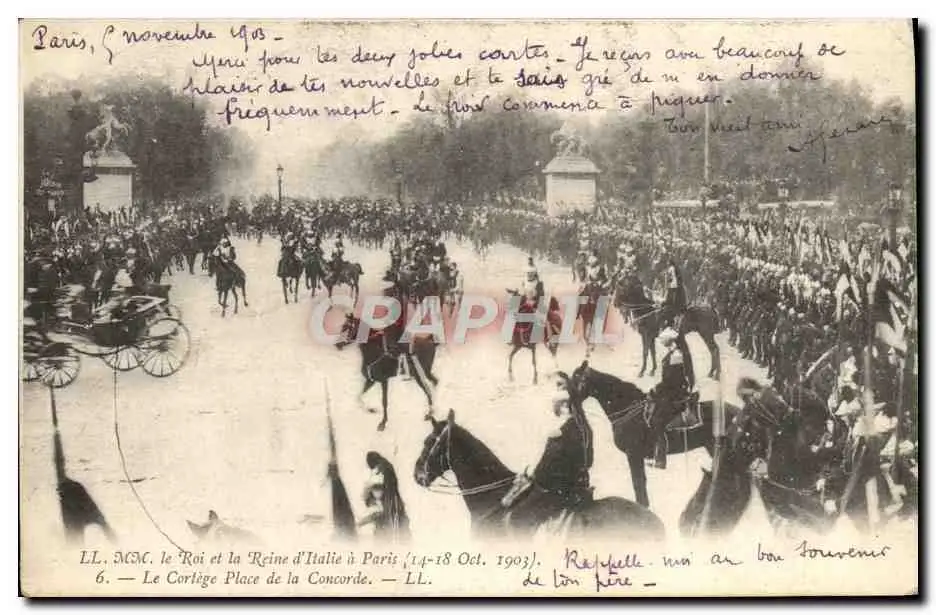 Paris, 5 novembre 1903 -
Merci pour tes deux jolies cartes - Je reçois avec beaucoup de
plaisir de tes nouvelles et te sais gré de m'en donner
fréquemment - Le froid commence à piquer -
Ton vieil ami Césaire
CPARAMA
LL. MM. le Roi et la Reine d'Italie à Paris (14-18 Oct. 1903).
6. — Le Cortège Place de la Concorde. — LL.
Rappelle-moi au bon souvenir
de ton père -